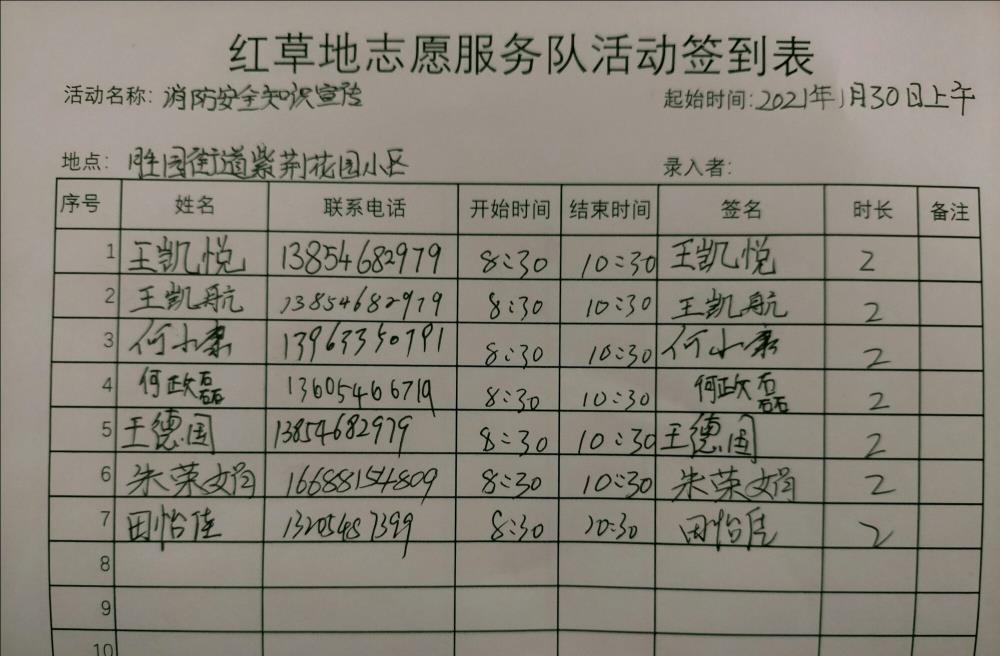 红草地志愿服务队活动签到表
活动名称：消防安全知识宣传 起始时间：2021年1月30日上午
地点：胜园街道紫荆花园小区 录入者：
序号 姓名 联系电话 开始时间 结束时间 签名 时长 备注
1 王凯悦 13854682979 8:30 10:30 王凯悦 2
2 王凯航 13854682979 8:30 10:30 王凯航 2
3 何小豪 13963350791 8:30 10:30 何小豪 2
4 何政磊 13605466719 8:30 10:30 何政磊 2
5 王德国 13854682979 8:30 10:30 王德国 2
6 朱荣娟 16688154809 8:30 10:30 朱荣娟 2
7 田怡佳 13205487399 8:30 10:30 田怡佳 2
8
9
10